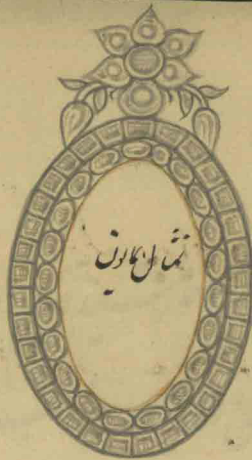 تمثال همایون